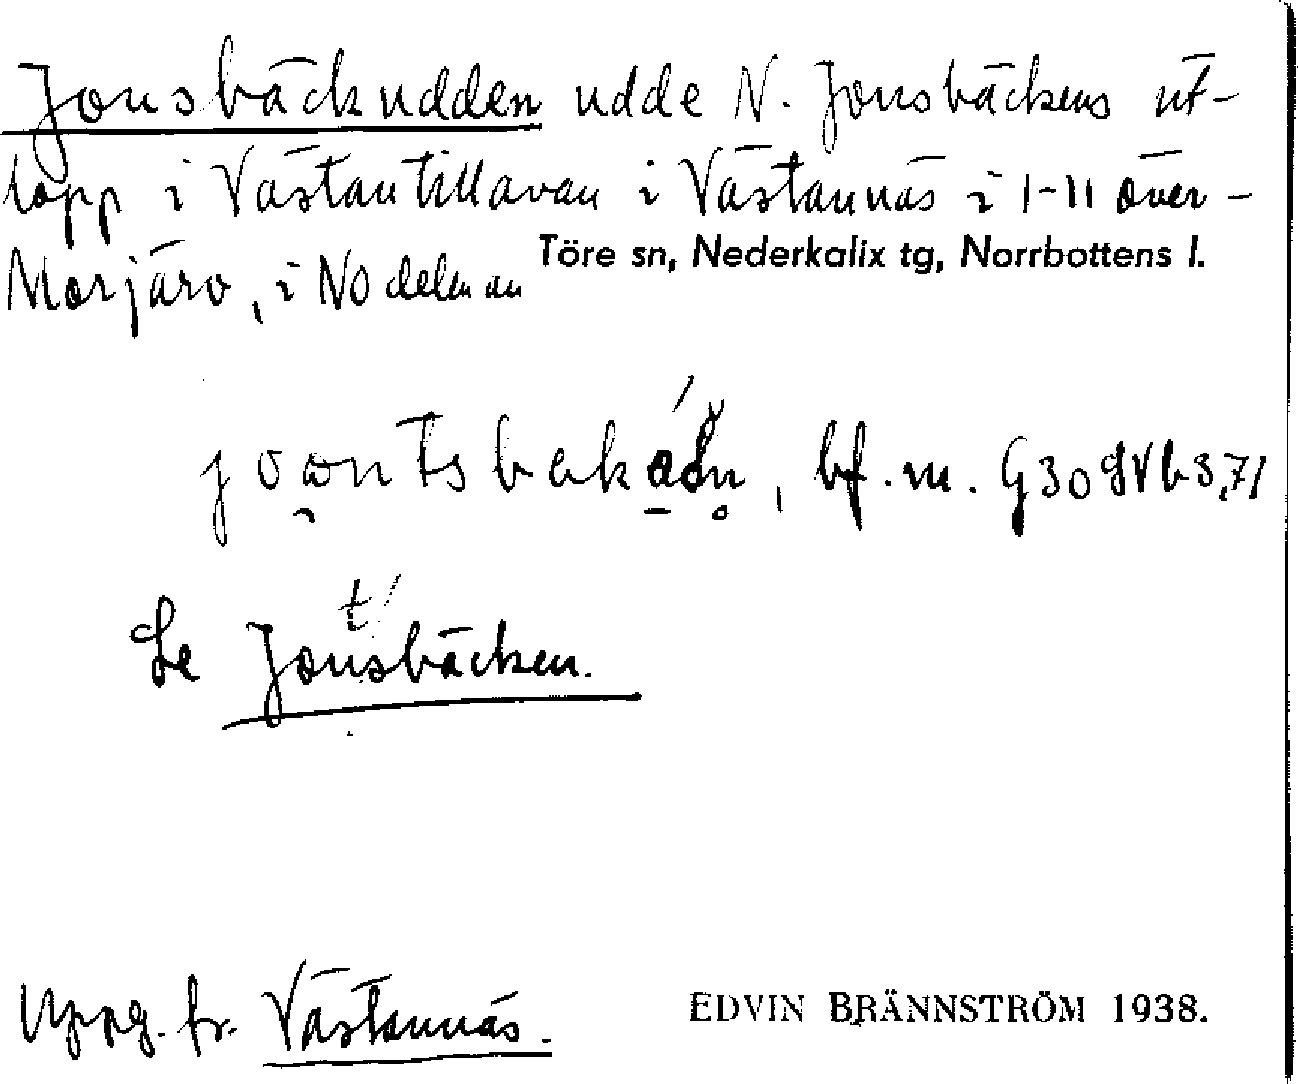 Jonsbäckudden udde N. Jonsbäckens ut-
lopp i Västantillavan i Västannäs i 1-11 över-
Morjärv, i NO delen av
Töre sn, Nederkalix tg, Norrbottens l.
bf. m.
Se Jonsbäcken.
t/
Uppg. fr. Västannäs.
EDVIN BRÄNNSTRÖM 1938.